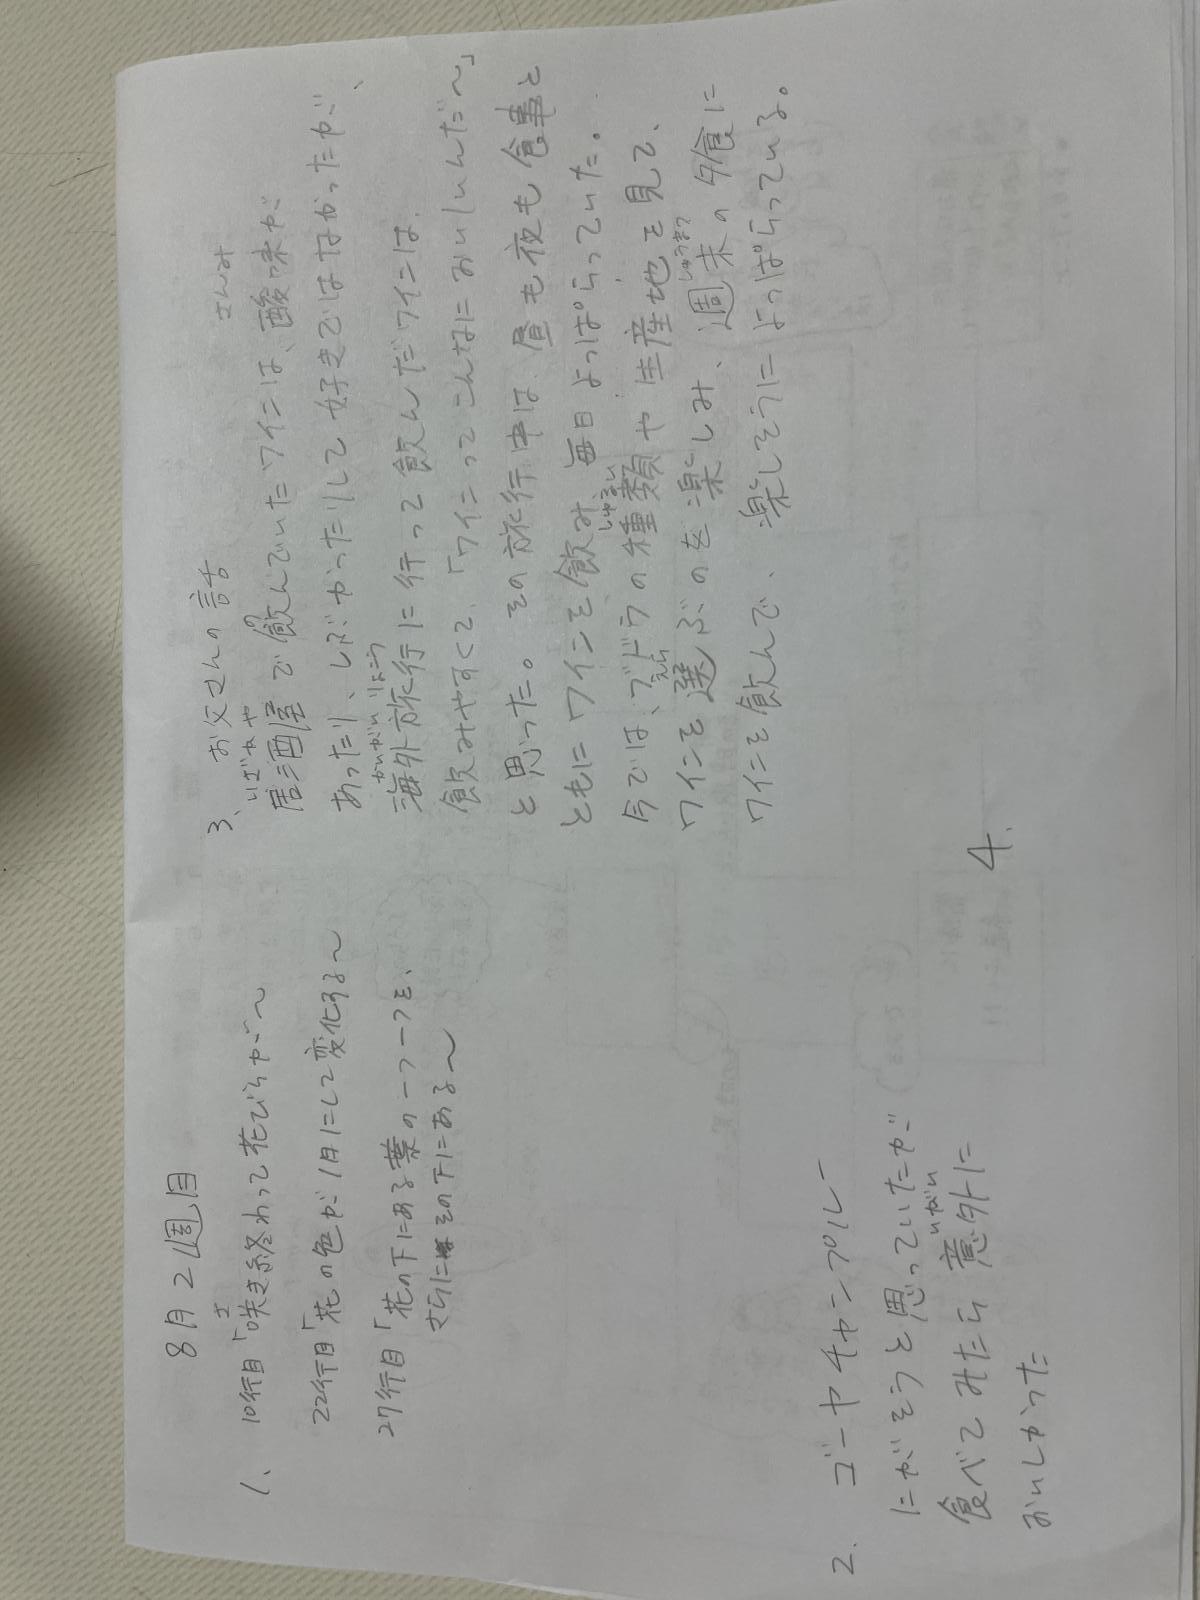 8月2週目
1、 10行目「咲き終わって花びらが〜
さ
22行目「花の色が1日にして変化する〜
27行目「花の下にある葉の一つ一つを、
さらにその下にある〜
2. ゴーヤチャンプルー
にがそうと思っていたが
食べてみたら意外に
いがい
おいしかった
3、 お父さんの話
いざかや さんみ
居酒屋で飲んでいたワインは、酸味が
の
あったり、しぶかったりして好きではなかったが、
かいがいりょこう
海外旅行に行って飲んだワインは、
飲みやすくて、「ワインってこんなにおいしいんだ〜」
と思った。その旅行中は、昼も夜も食事と
ともにワインを飲み、毎日よっぱらっていた。
しゅるい
今では、ブドウの種類や生産地を見て、
えら しゅうまつ
ワインを選ぶのを楽しみ、週末の夕食に
ワインを飲んで、楽しそうによっぱらっている。
4.